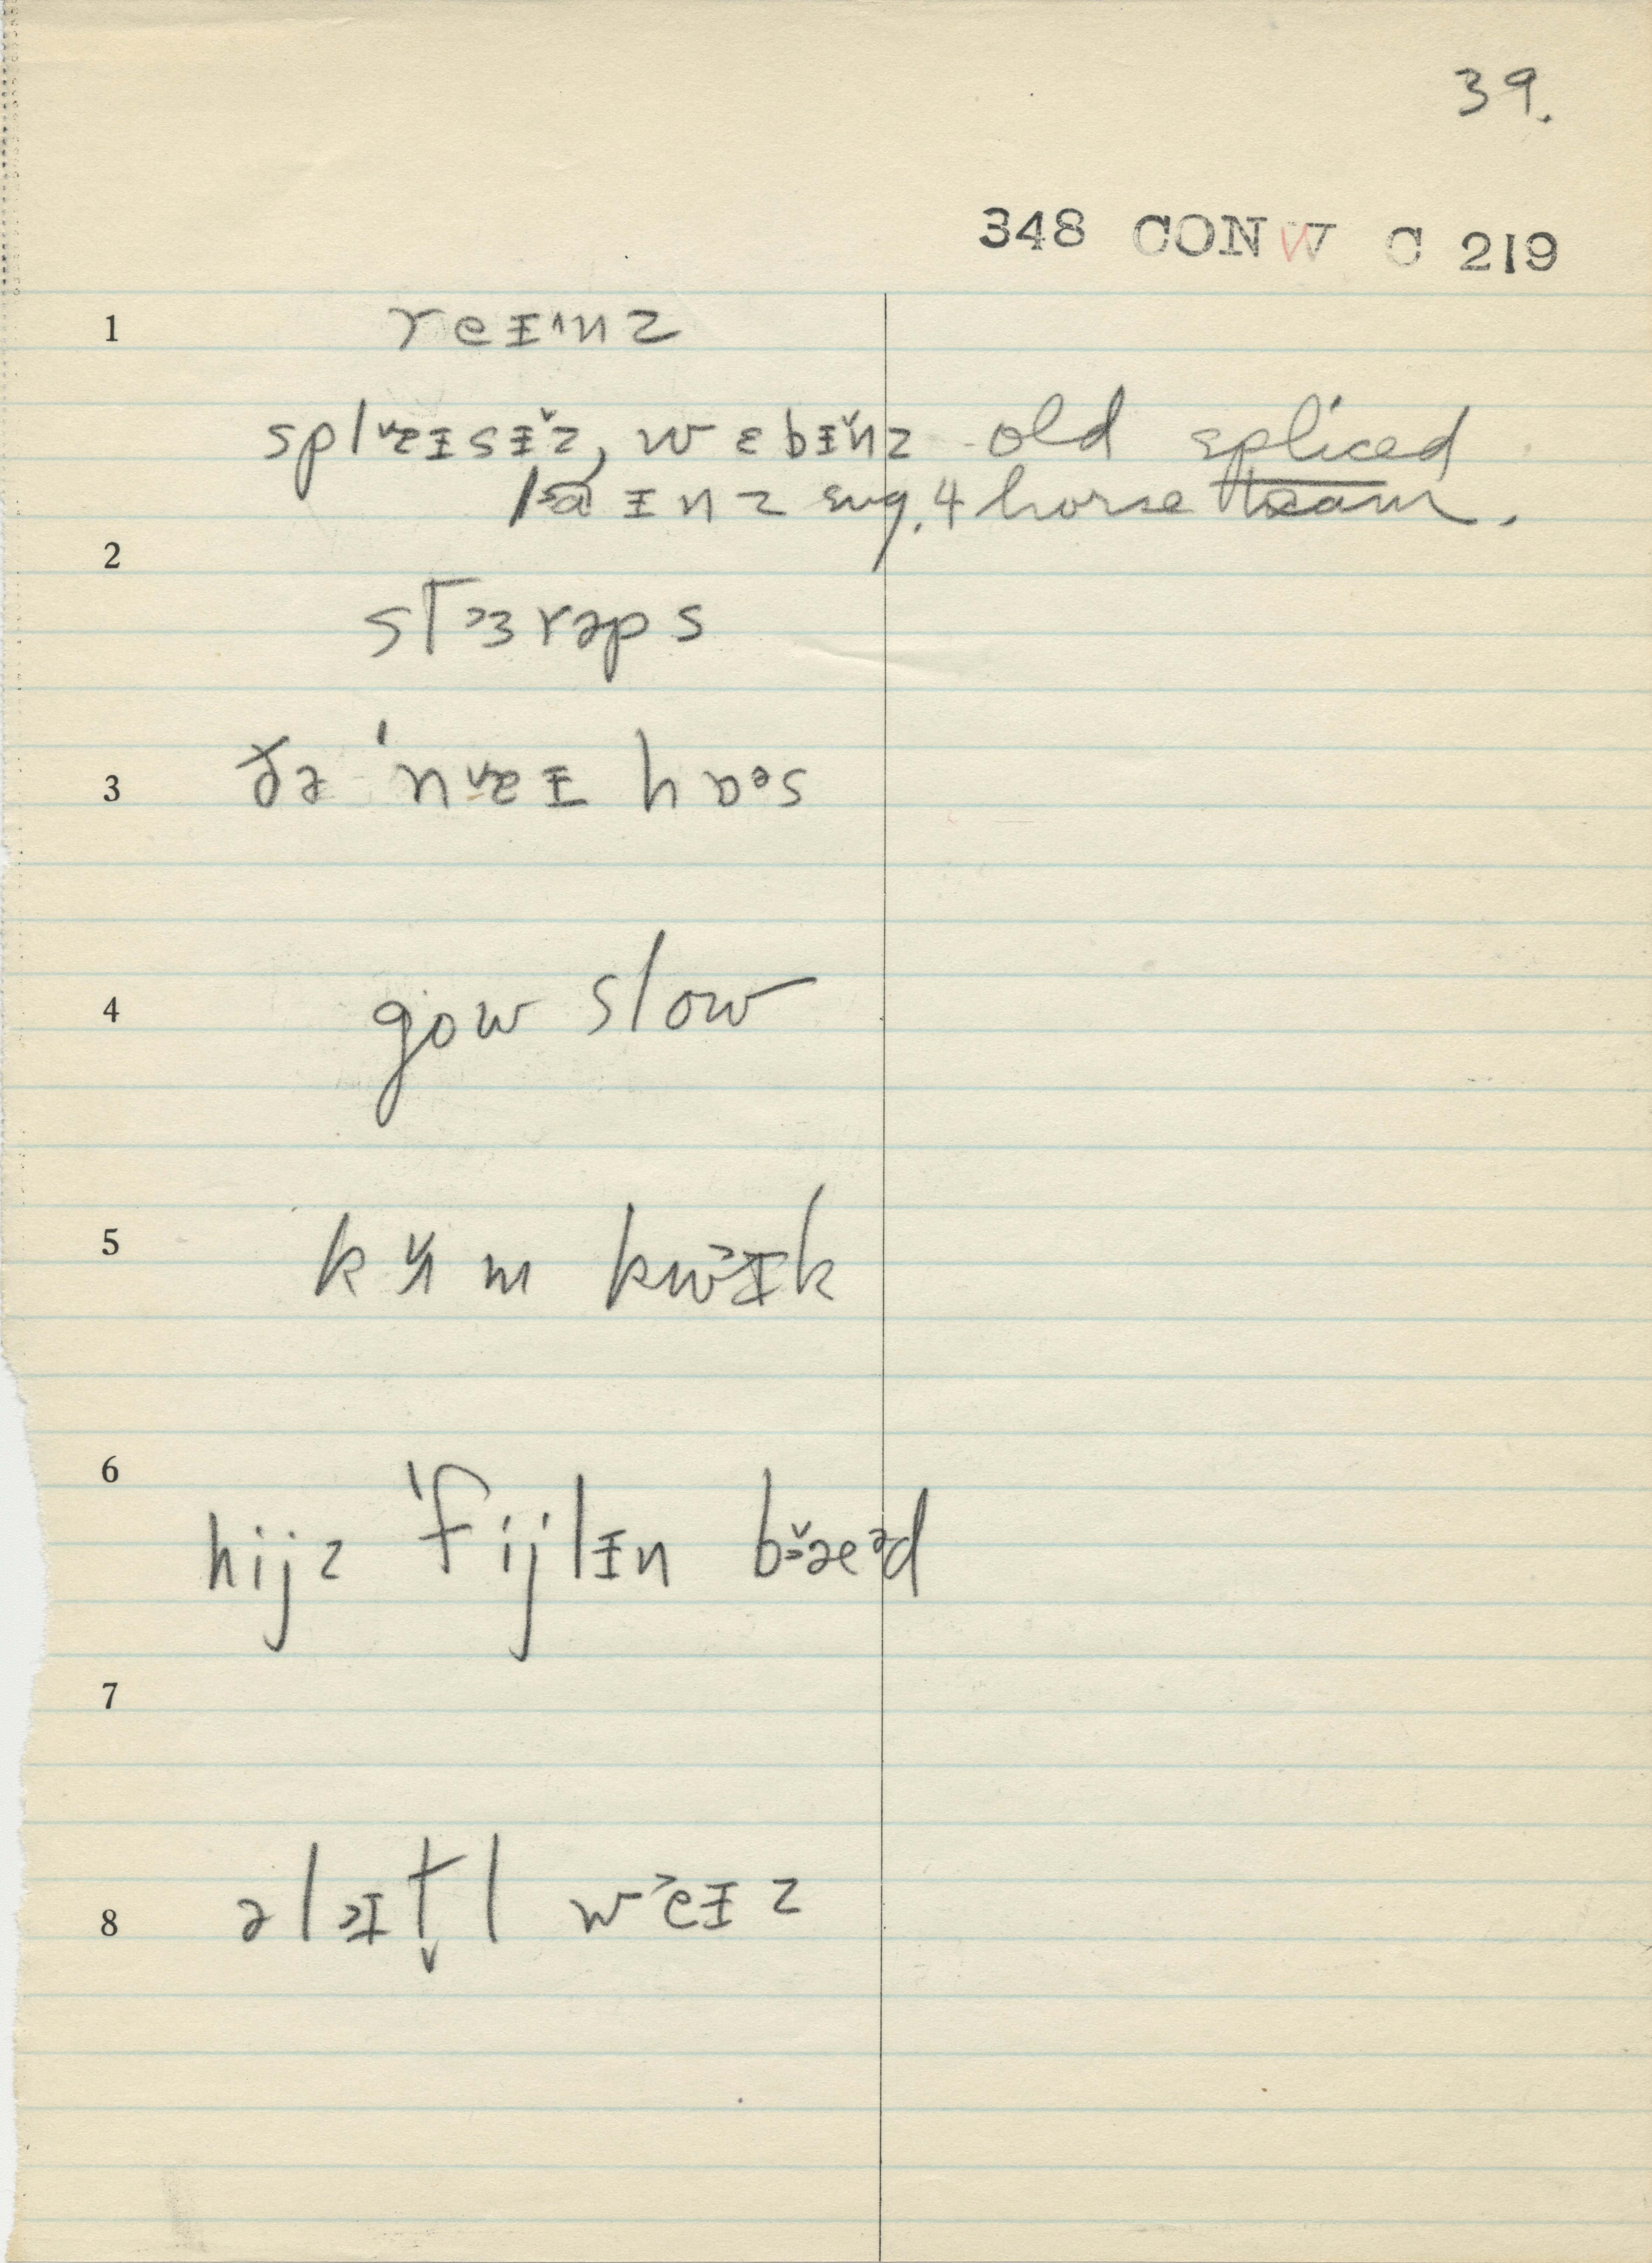 39.
348 CONW C 219
1 reɪ˄nz
splɐɪsɪ̌z, wɛbɪ̌nz old spliced
laɪnz eng. 4 horse team.
2
st˃ɜrəps
3 ðə ˈnɐɪ hɒəs
4 gow slow
5 kʌ̌m kw˃ɪk
6 hijz ˈfijlɪn bæəd
7
8 əlɪt̬l w˃eɪz